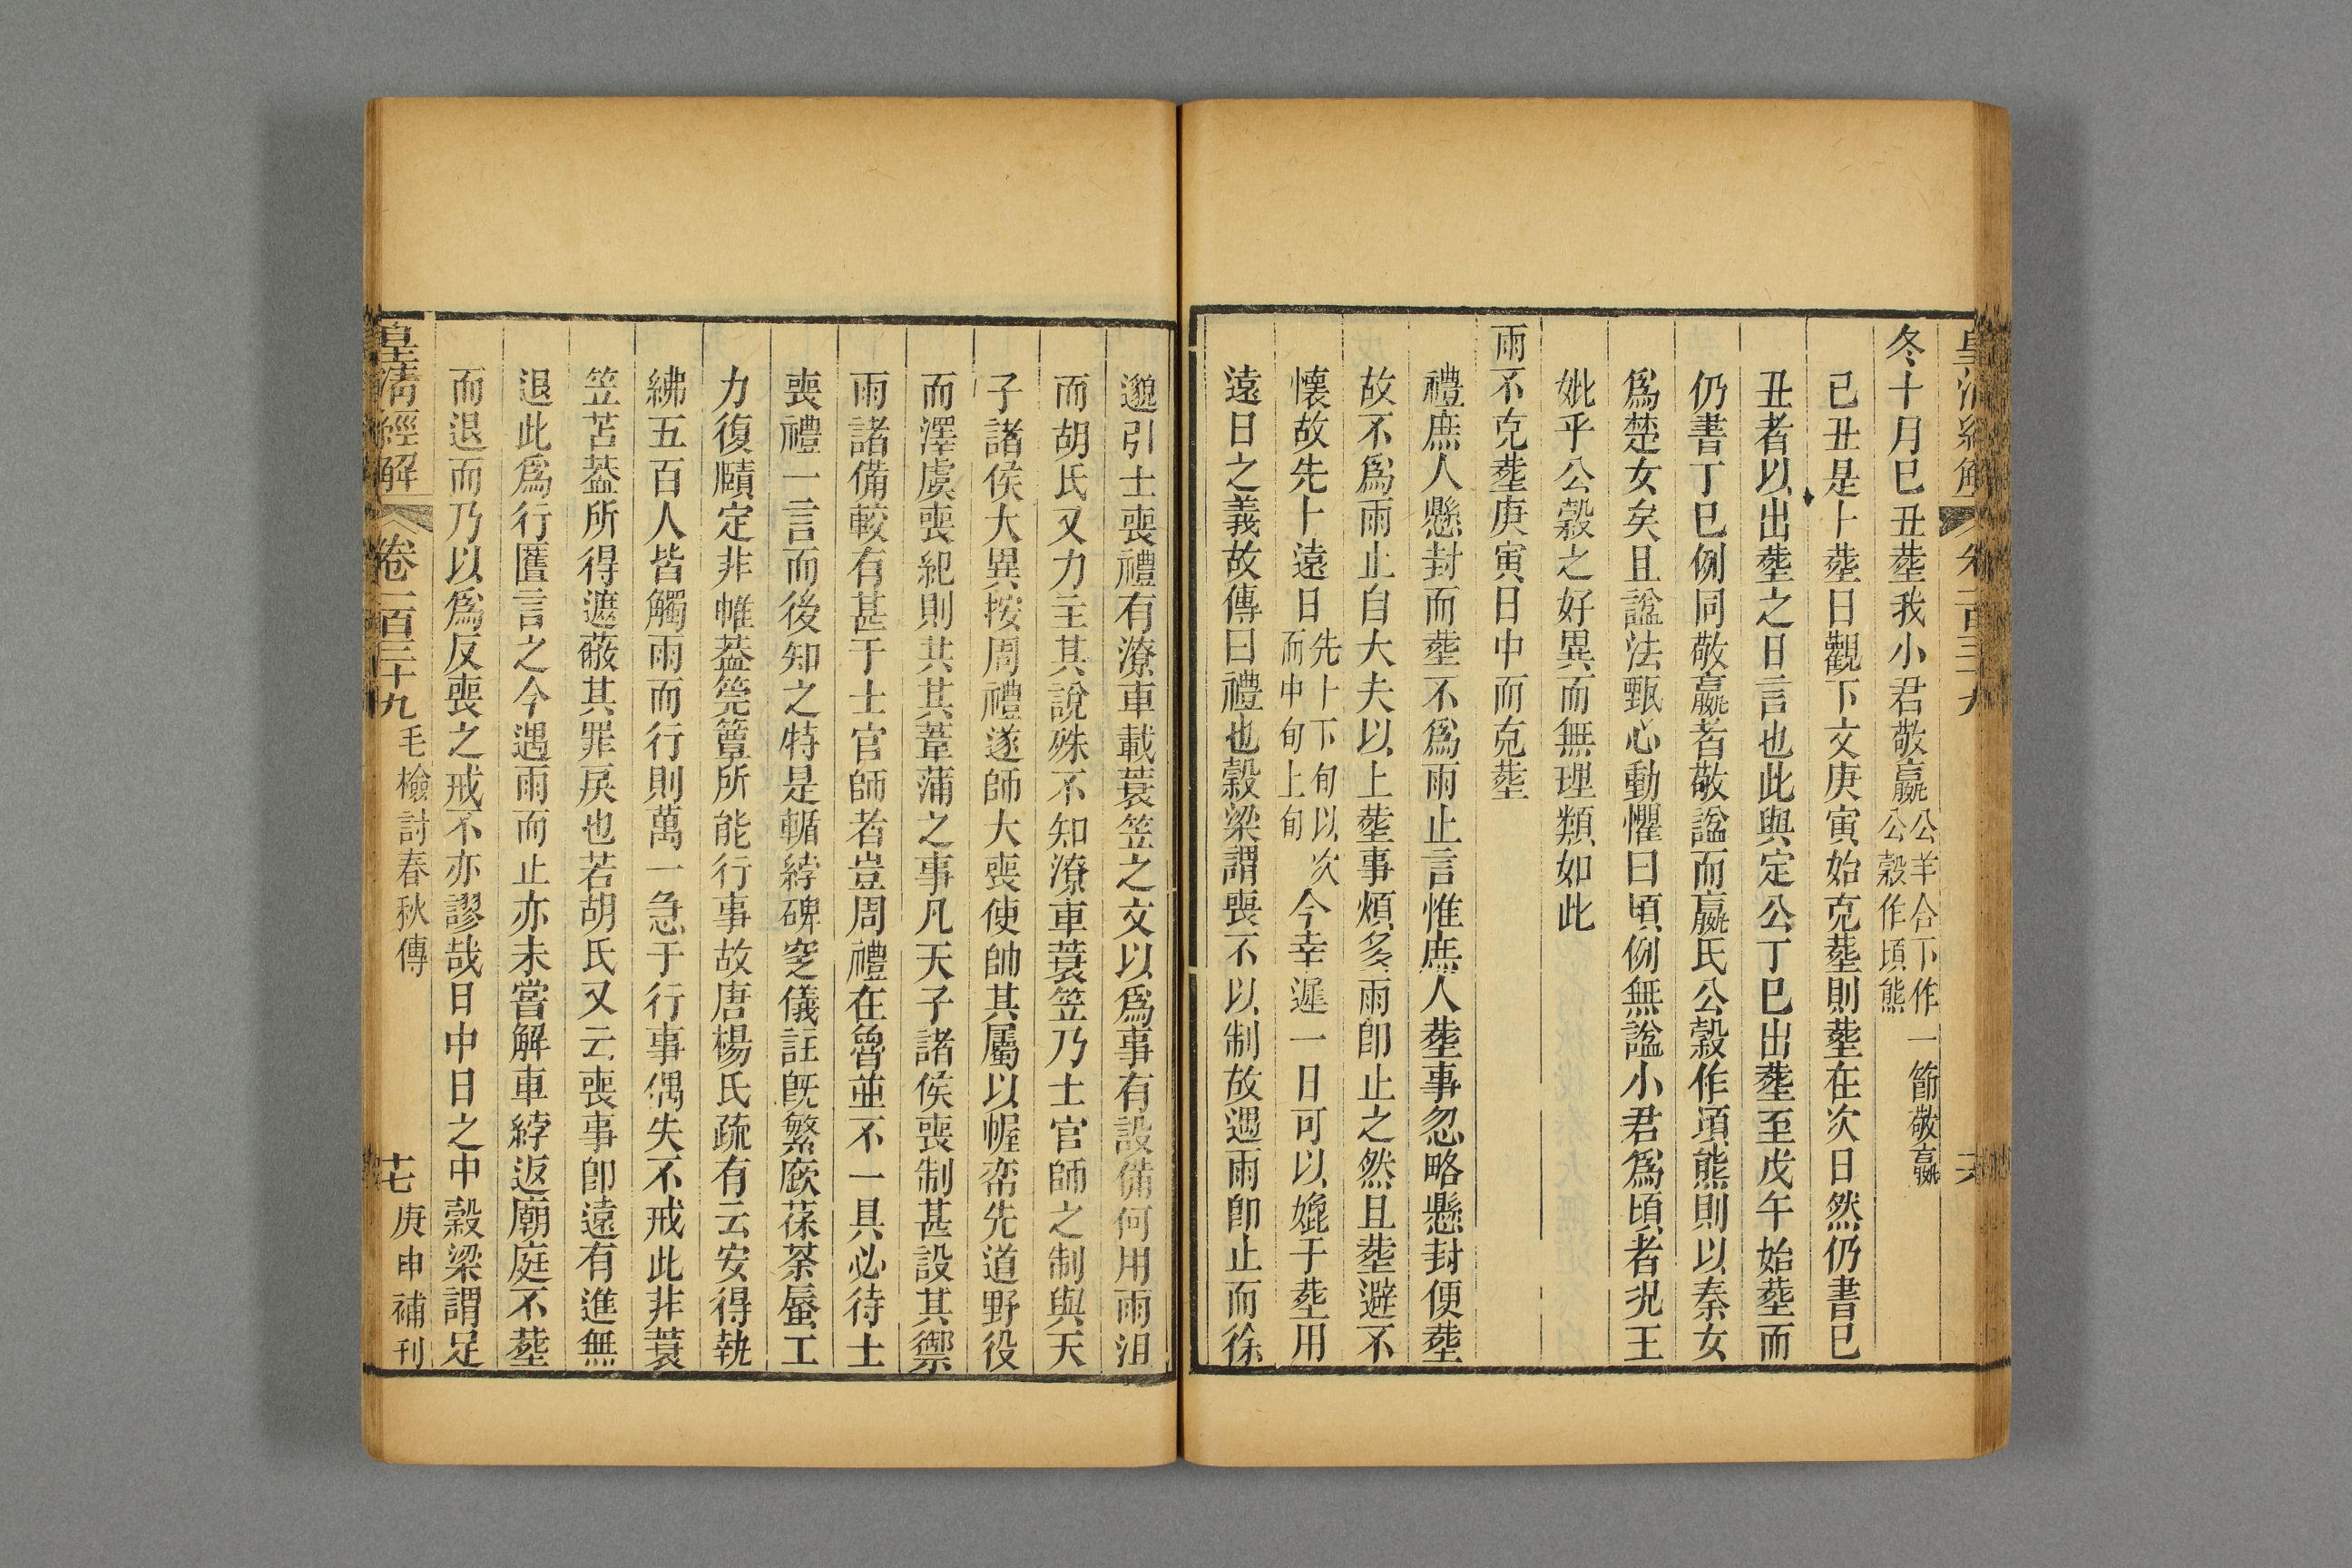 皇清經解 卷一百三十九 六
冬十月巳丑塟我小君敬嬴公羊合下作一節敬嬴公穀作頃熊
己丑是卜塟日觀下文庚寅始克塟則塟在次日然仍書巳
丑者以出塟之日言也此與定公丁巳出塟至戊午始塟而
仍書丁巳例同敬嬴者敬諡而嬴氏公穀作頃熊則以秦女
爲楚女矣且諡法甄心動懼曰頃例無諡小君爲頃者況王
妣乎公穀之好異而無理類如此
雨不克塟庚寅日中而克塟
禮庶人懸封而塟不爲雨止言惟庶人塟事忽略懸封便塟
故不爲雨止自大夫以上塟事煩多雨卽止之然且塟避不
懷故先卜遠日先卜下旬以次而中旬上旬今幸遲一日可以媲于塟用
遠日之義故傳曰禮也穀梁謂喪不以制故遇雨卽止而徐
邈引士喪禮有潦車載蓑笠之文以爲事有設備何用雨沮
而胡氏又力主其說殊不知潦車蓑笠乃士官師之制與天
子諸侯大異按周禮遂師大喪使帥其屬以幄帟先道野役
而澤虞喪紀則共其葦蒲之事凡天子諸侯喪制甚設其禦
雨諸備較有甚于士官師者豈周禮在魯並不一具必待士
喪禮一言而後知之特是輴綍碑窆儀註旣繁廞葆荼蜃工
力復賾定非帷葢筦簟所能行事故唐楊氏疏有云安得執
紼五百人皆觸雨而行則萬一急于行事偶失不戒此非蓑
笠苫葢所得遮蔽其罪戾也若胡氏又云喪事卽遠有進無
退此爲行匶言之今遇雨而止亦未嘗解車綍返廟庭不塟
而退而乃以爲反喪之戒不亦謬哉日中日之中穀梁謂足
皇清經解 卷一百三十九 毛檢討春秋傳 十七 庚申補刊